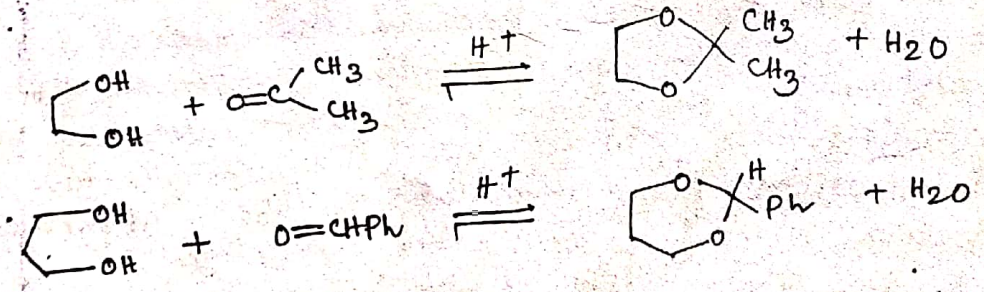 OH
OH
+ O=C
CH3
CH3
H+
O
O
CH3
CH3
+ H2O
OH
OH
+ O=CHPh
H+
O
O
H
Ph
+ H2O